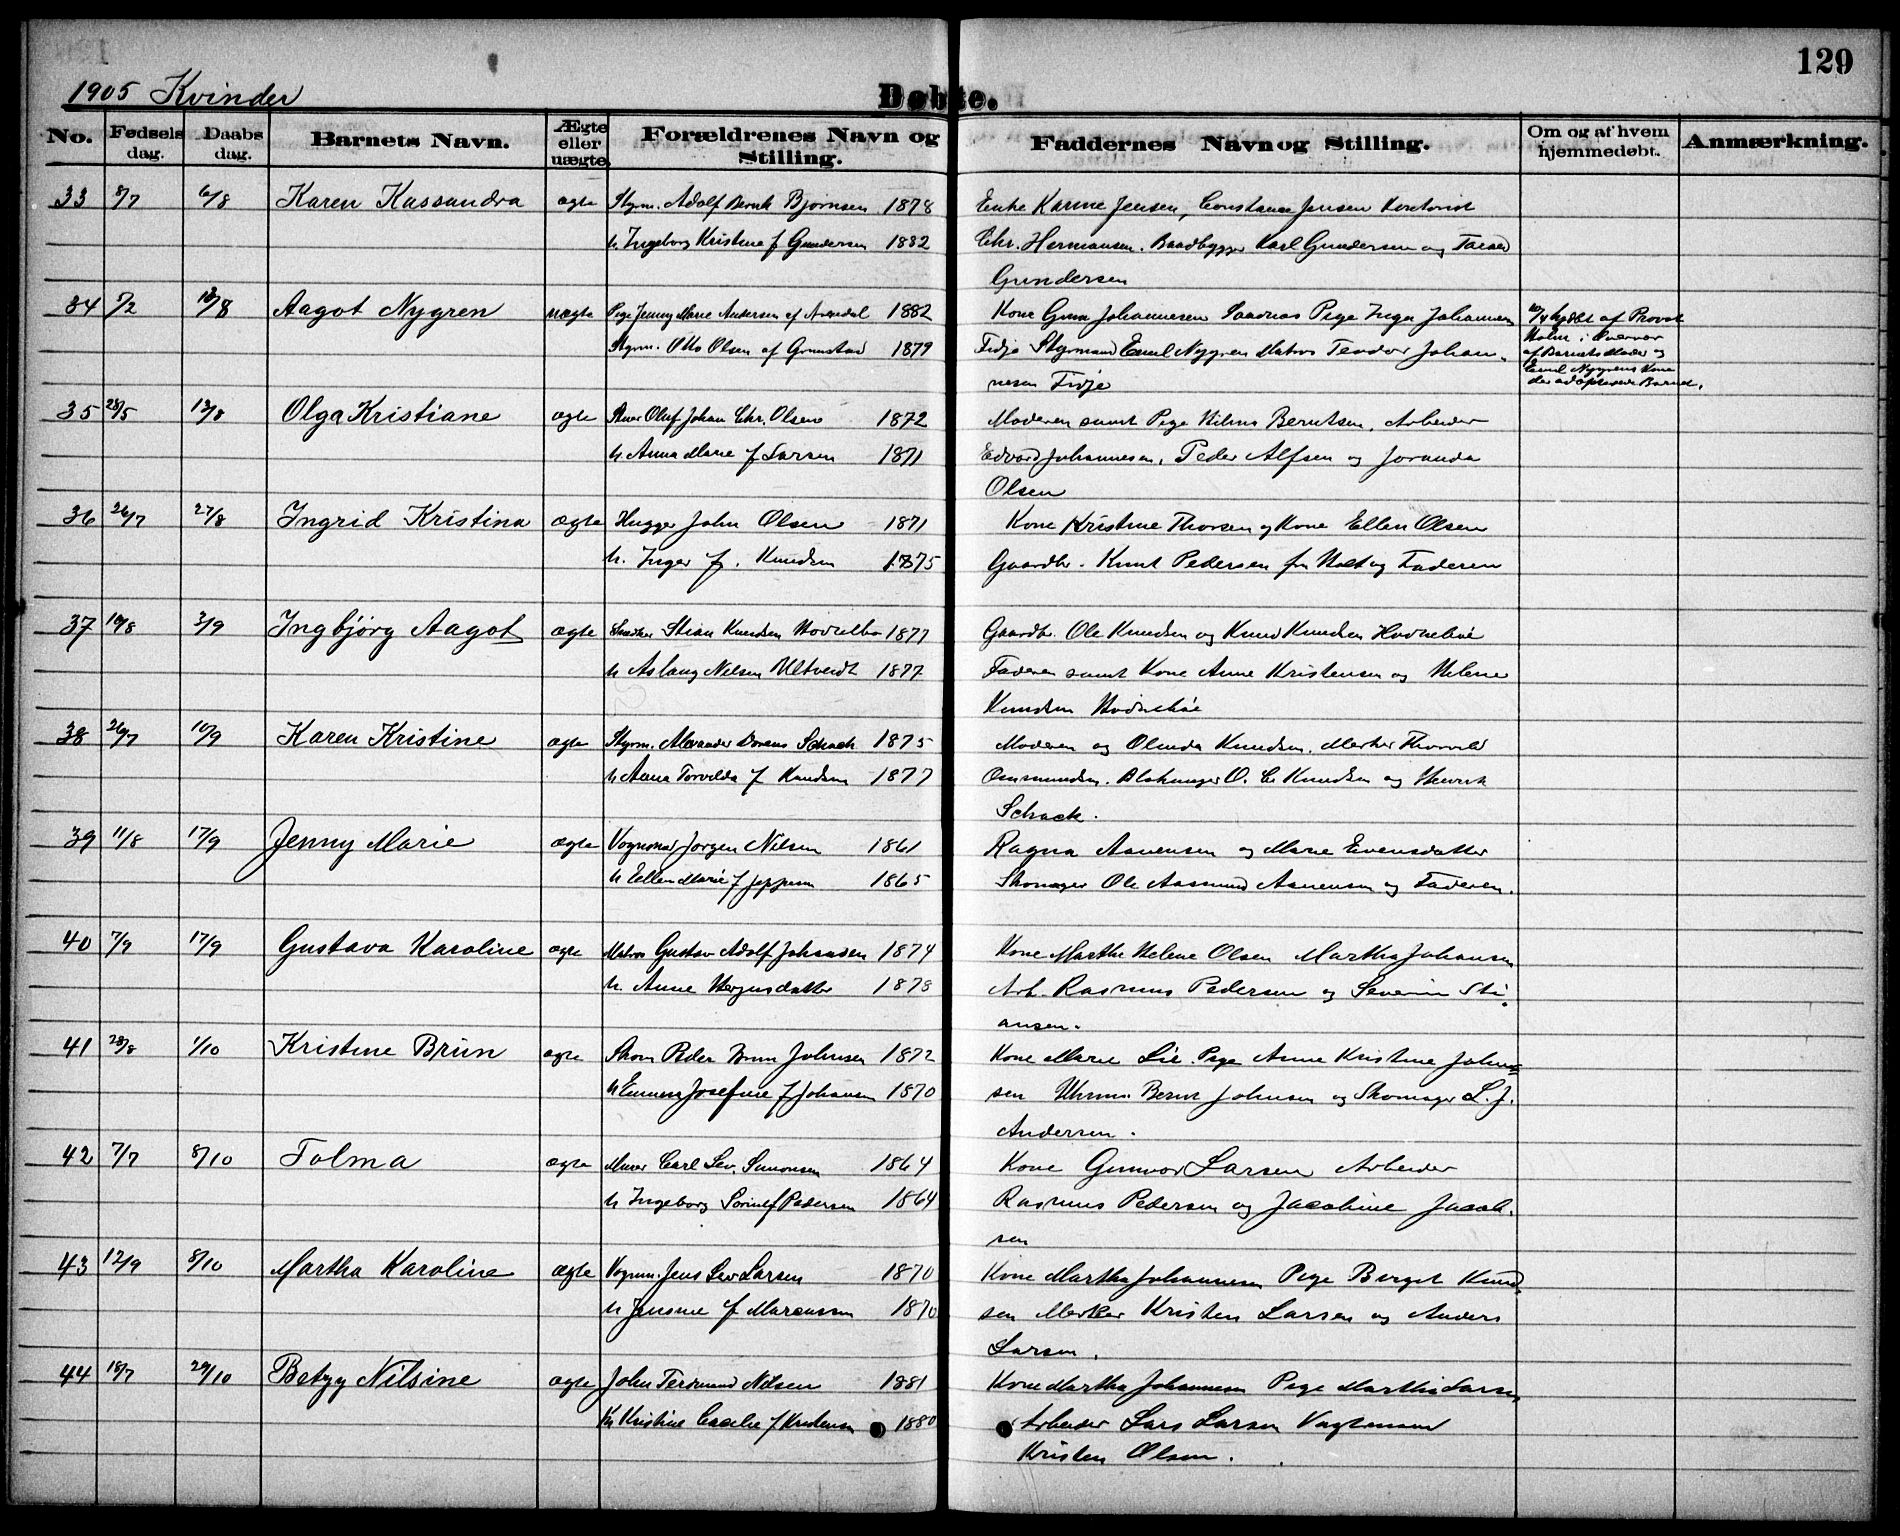 129
1905 Kvinder
Døbte.
No. Fødsels dag. Daabs dag. Barnets Navn. Ægte eller uægte. Forældrenes Navn og Stilling. Faddernes Navn og Stilling. Om og af hvem hjemmedøbt. Anmærkning.
33 8/7 6/8 Karen Kassandra ægte Styrm. Adolf Bernt Bjørnsen 1878 Enke Karine Jensen, Constance Jensen
h. Ingeborg Kristine f Gundersen 1882 Chr. Hermansen. Baadbygger Karl Gundersen og
Gundersen
34 5/2 13/8 Aagot Nygren uægte Pige Jenny Marie Andersen af Arendal 1882 Kone Johannesen Pige Inga Johannesen hjdøbt af Provst
Styrm. Otto Olsen af Grimstad 1879 Fidje Styrmand Emil Nygren Matros Teodor Johan- Holm i Overvær
nesen Fidje af Barnets Moder og
Emil Nygrens Kone
der adopterede Barnet.
35 28/5 13/8 Olga Kristiane ægte Oluf Johan Chr. Olsen 1872 Moderen samt Pige Berntsen, Arbeider
h. Anna Marie f Larsen 1871 Edvard Johannesen, Peder Alfsen og
Olsen
36 26/7 27/8 Ingrid Kristina ægte Hugger John Olsen 1871 Kone Kristine Thorsen og Kone Ellen Olsen
h. Inger f. Knudsen 1875 Gaardbr. Knut Pedersen fra Holt og Faderen
37 10/8 3/9 Ingbjørg Aagot ægte Stian Knudsen 1877 Gaardbr. Ole Knudsen og Knud Knudsen
h Aslaug Nilsen 1877 Faderen samt Kone Anne Kristensen og Helene
Knudsen
38 26/7 10/9 Karen Kristine ægte Styrm. Alexander Schack 1875 Moderen og Olinda Knudsen. Merker Thorvald
h Anna Torvilda f Knudsen 1877 Osmundsen. O. C. Knudsen og Henrik
Schack.
39 11/8 17/9 Jenny Marie ægte Vognmd Jørgen Nilsen 1861 Ragna Aanensen og Marie Evensdatter
h Ellen Marie f Jeppesen 1865 Skomager Ole Aasmund Aanensen og Faderen.
40 7/9 17/9 Gustava Karoline ægte Matros Gustav Adolf Johansen 1874 Kone Marthe Helene Olsen Martha Johansen
h. Anne 1873 Arb. Rasmus Pedersen og Severin Sti-
ansen.
41 28/8 1/10 Kristine Brun ægte Skom Peder Brun Johnsen 1872 Kone Marie Lie. Pige Anne Kristine John-
h Emma Josefine f Johansen 1870 sen Uhrm. Bernt Johnsen og Skomager L. J.
Andersen.
42 7/7 8/10 Tolma ægte Murer Carl Sev. Simonsen 1864 Kone Gunvor Larsen Arbeider
h Ingeborg Sørine f Pedersen 1864 Rasmus Pedersen og Jacobine Jacob-
sen
43 12/9 8/10 Martha Karoline ægte Vognm. Jens Sev Larsen 1870 Kone Martha Johannesen Pige Berget Knud-
h Jensine f Marcussen 1870 sen Merker Kristen Larsen og Anders
Larsen.
44 18/7 29/10 Betzy Nilsine ægte John Ferdinand Nilsen 1881 Kone Martha Johannesen Pige Martha Larsen
h Kristine Cecilie f Kristensen 1880 Arbeider Lars Larsen Vagtmand
Kristen Olsen.